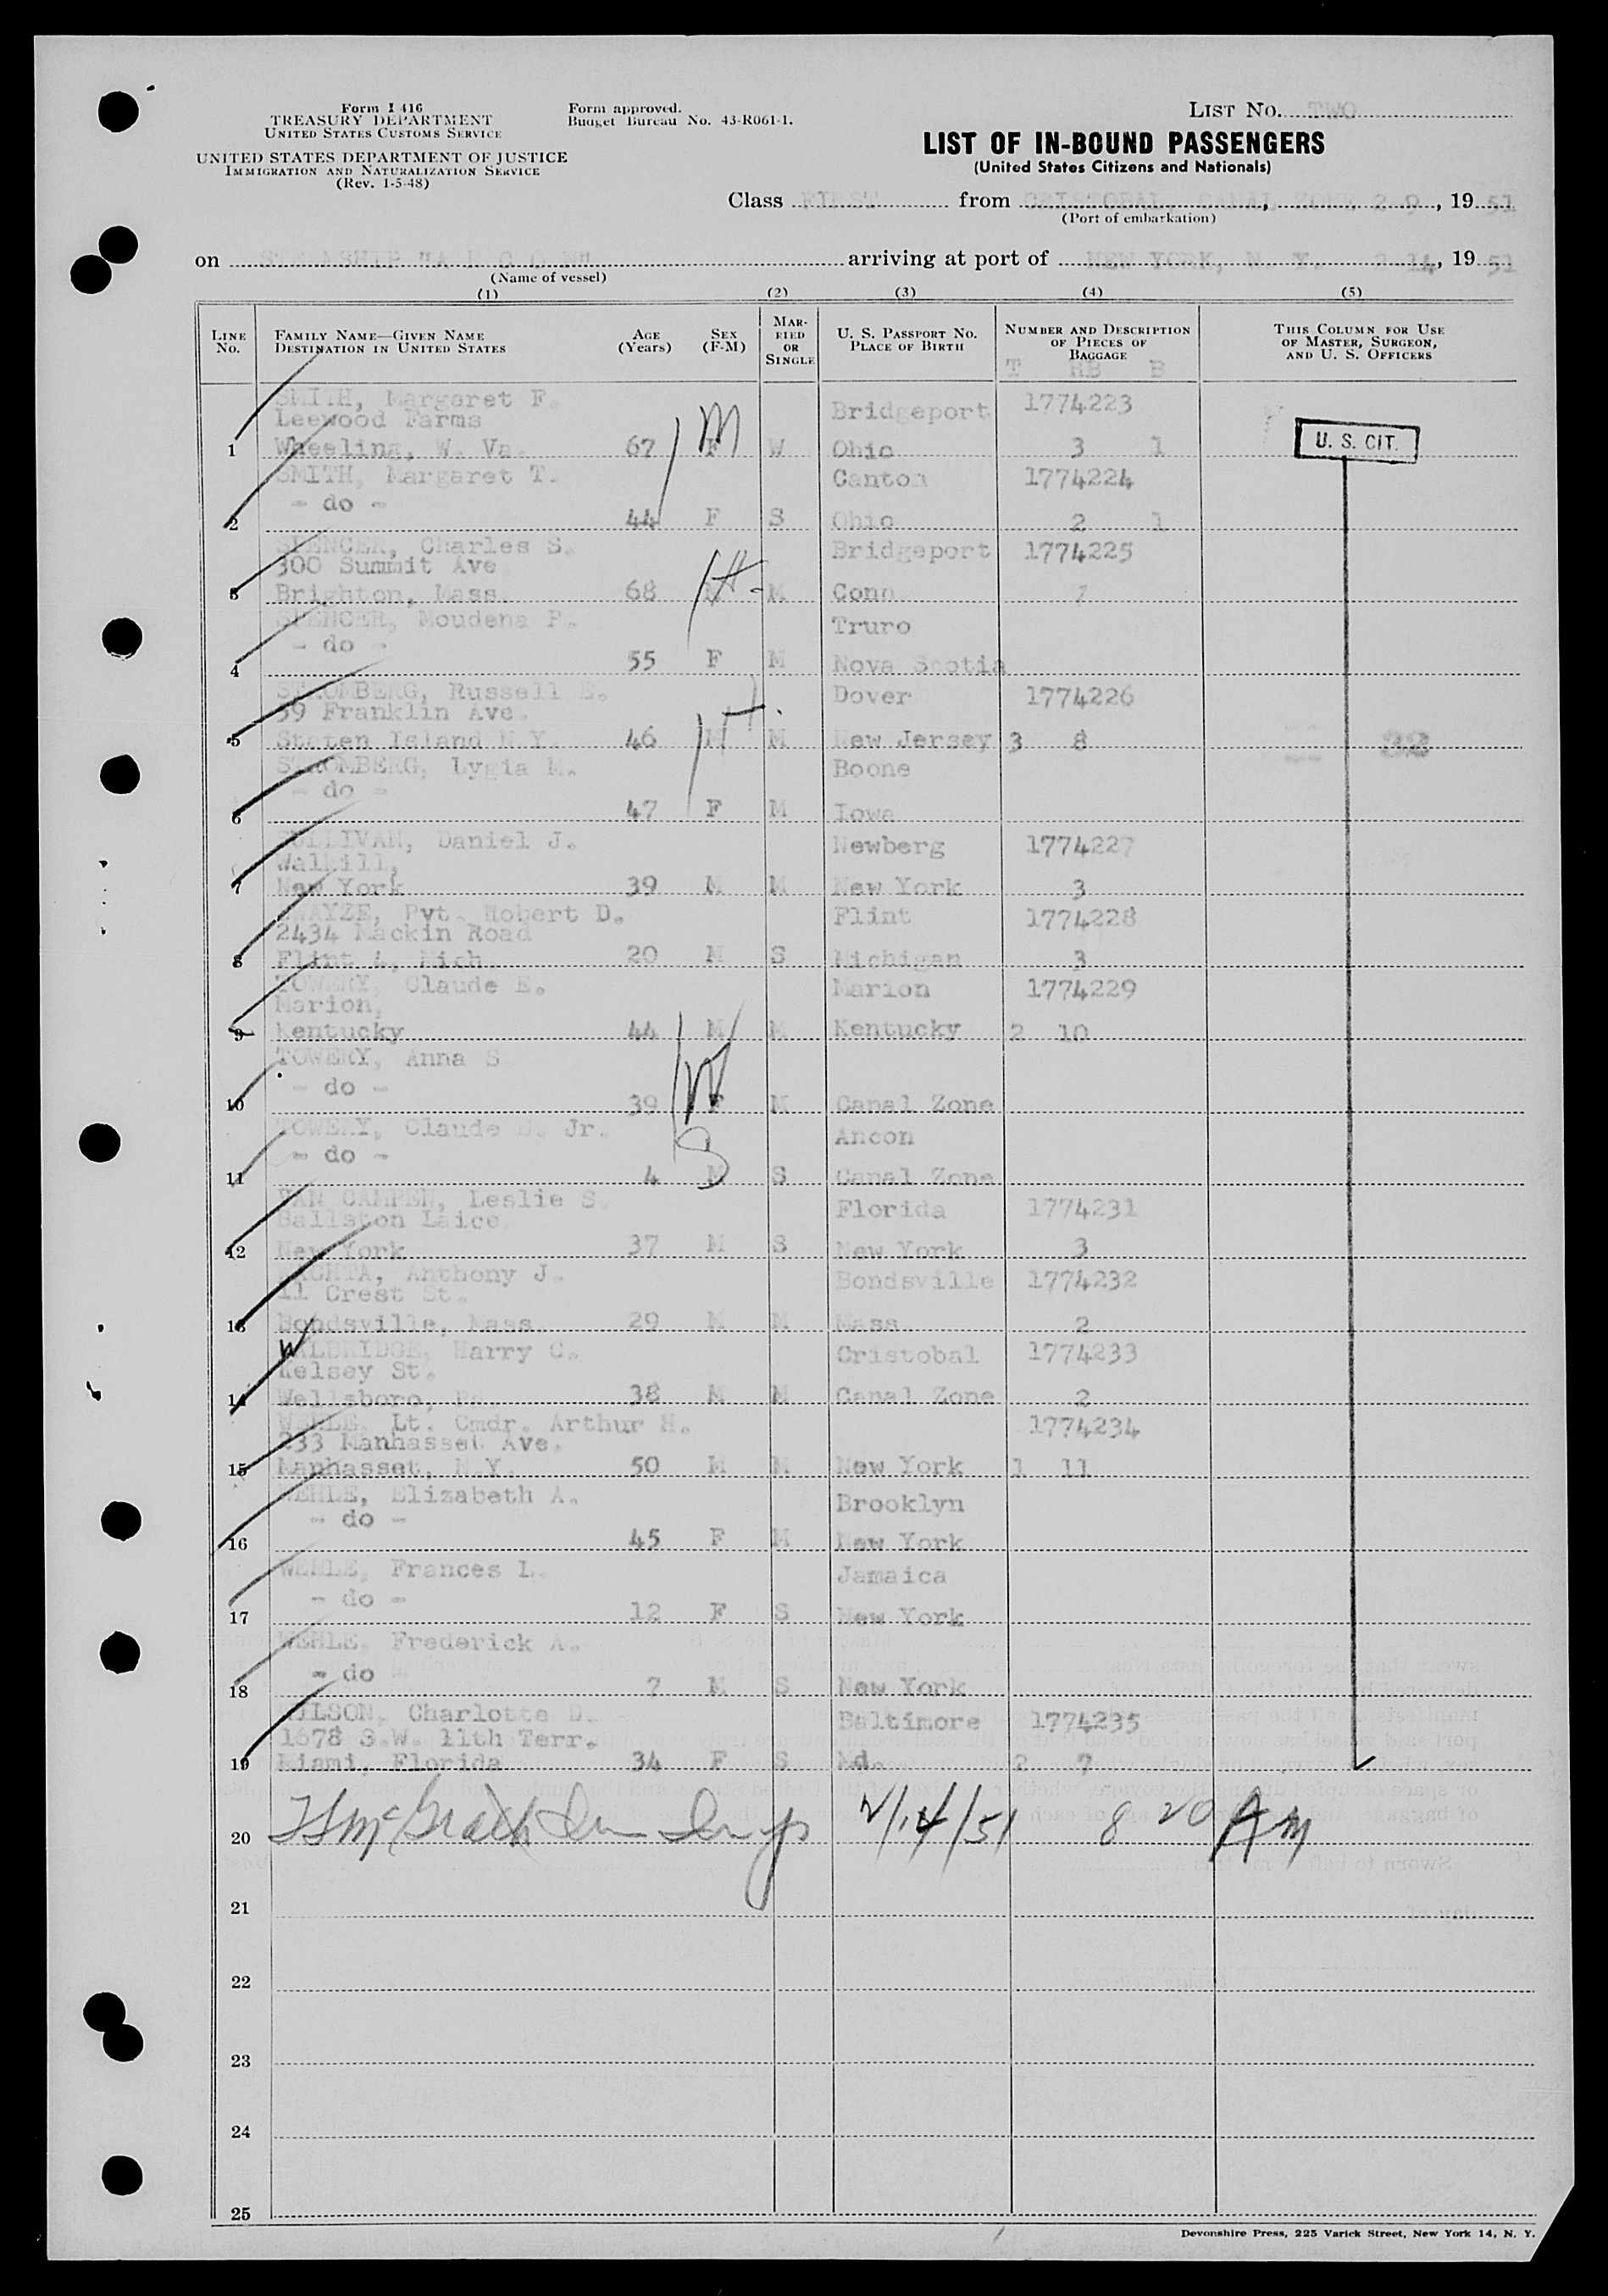 Form I 416
TREASURY DEPARTMENT
UNITED STATES CUSTOMS SERVICE
UNITED STATES DEPARTMENT OF JUSTICE
IMMIGRATION AND NATURALIZATION SERVICE
(Rev. 1-5-48)
Form approved.
Budget Bureau No. 43-R061-1.
LIST NO. TWO
LIST OF IN-BOUND PASSENGERS
(United States Citizens and Nationals)
Class FIRST from CRISTOBAL, CANAL ZONE 2 9, 19 51
(Port of embarkation)
on STEAMSHIP "A N C O N" arriving at port of NEW YORK, N. Y. 2 14, 19 51
(Name of vessel)
(1) (2) (3) (4) (5)
LINE NO. FAMILY NAME—GIVEN NAME DESTINATION IN UNITED STATES AGE (Years) SEX (F-M) MARRIED OR SINGLE U. S. PASSPORT NO. PLACE OF BIRTH NUMBER AND DESCRIPTION OF PIECES OF BAGGAGE THIS COLUMN FOR USE OF MASTER, SURGEON, AND U. S. OFFICERS
T HB B
SMITH, Margaret F. Bridgeport 1774223
Leewood Farms
1 Wheeling, W. Va. 67 F M W Ohio 3 1 U. S. CIT.
SMITH, Margaret T. Canton 1774224
- do -
2 44 F S Ohio 2 1
SPENCER, Charles S. Bridgeport 1774225
300 Summit Ave
3 Brighton, Mass. 68 M M Conn 7
SPENCER, Moudena P. Truro
- do -
4 55 F M Nova Scotia
STROMBERG, Russell E. Dover 1774226
59 Franklin Ave.
5 Staten Island N.Y. 46 M M New Jersey 3 8
STROMBERG, Lygia M. Boone
- do -
6 47 F M Iowa
SULLIVAN, Daniel J. Newberg 1774227
Walkill,
7 New York 39 M M New York 3
SWAYZE, Pvt. Robert D. Flint 1774228
2434 Mackin Road
8 Flint 4, Mich. 20 M S Michigan 3
TOWERY, Claude E. Marion 1774229
Marion,
9 Kentucky 44 M M Kentucky 2 10
TOWERY, Anna S
- do -
10 39 F M Canal Zone
TOWERY, Claude E. Jr. Ancon
- do -
11 4 M S Canal Zone
VAN CAMPEN, Leslie S. Florida 1774231
Ballston Laice
12 New York 37 M S New York 3
Anthony J. Bondsville 1774232
11 Crest St.
13 Bondsville, Mass. 29 M M Mass 2
WALDRIDGE, Harry C. Cristobal 1774233
Kelsey St.
14 Wellsboro, Pa. 38 M M Canal Zone 2
WEHLE, Lt. Cmdr. Arthur H. 1774234
233 Manhasset Ave.
15 Manhasset, N.Y. 50 M M New York 1 11
WEHLE, Elizabeth A. Brooklyn
- do -
16 45 F M New York
WEHLE, Frances L. Jamaica
- do -
17 12 F S New York
WEHLE, Frederick A.
- do -
18 7 M S New York
WILSON, Charlotte D. Baltimore 1774235
1678 S.W. 11th Terr.
19 Miami, Florida 34 F S Md. 2 7
20 McGrath 2/14/51 8 20 AM
21
22
23
24
25
Devonshire Press, 225 Varick Street, New York 14, N. Y.